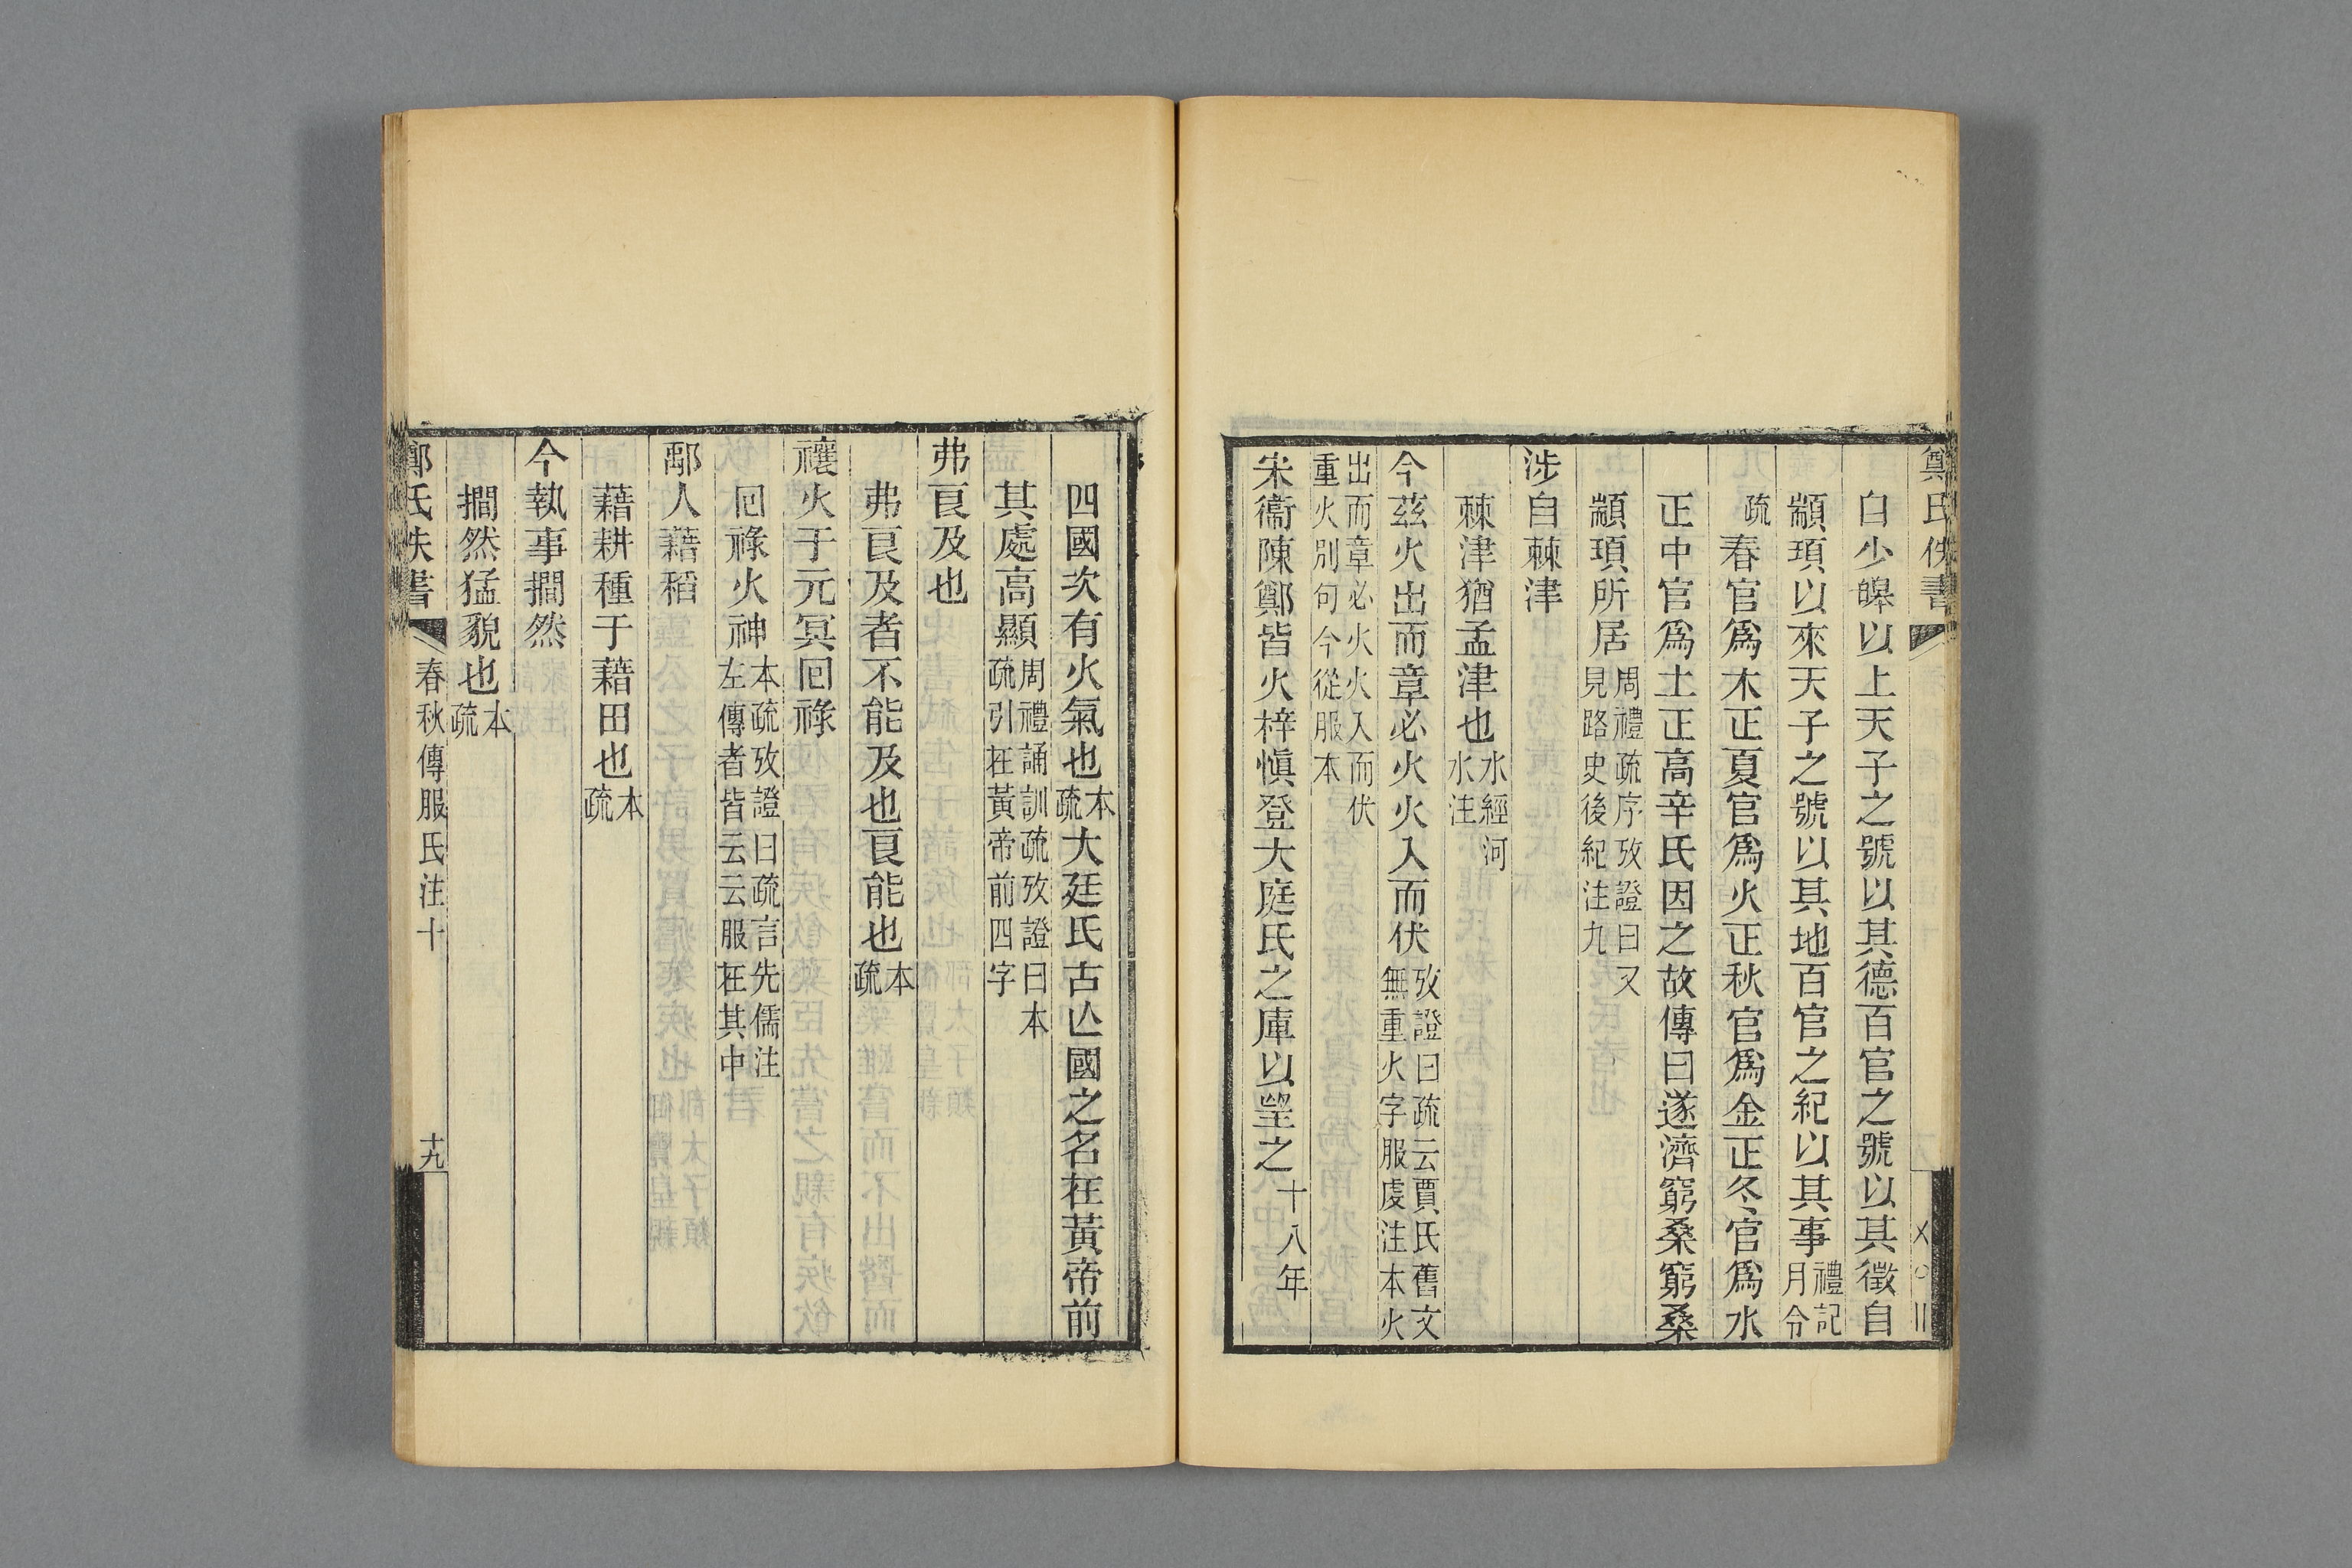 鄭氏佚書
白少皞以上天子之號以其德百官之號以其徵自
顓頊以來天子之號以其地百官之紀以其事禮記月令
疏春官爲木正夏官爲火正秋官爲金正冬官爲水
正中官爲土正高辛氏因之故傳曰遂濟窮桑窮桑
顓頊所居周禮疏序攷證曰又見路史後紀注九
涉自棘津
棘津猶孟津也水經河水注
今茲火出而章必火火入而伏攷證曰疏云賈氏舊文無重火字服虔注本火
出而章必火火入而伏重火別句今從服本
宋衞陳鄭皆火梓愼登大庭氏之庫以望之十八年
四國次有火氣也本疏大廷氏古亾國之名在黃帝前
其處高顯周禮誦訓疏攷證曰本疏引在黃帝前四字
弗良及也
弗良及者不能及也良能也本疏
禳火于元冥囘祿
囘祿火神本疏攷證曰疏言先儒注左傳者皆云云服在其中
鄅人藉稻
藉耕種于藉田也本疏
今執事撊然
撊然猛貌也本疏
鄭氏佚書 春秋傳服氏注十 十九